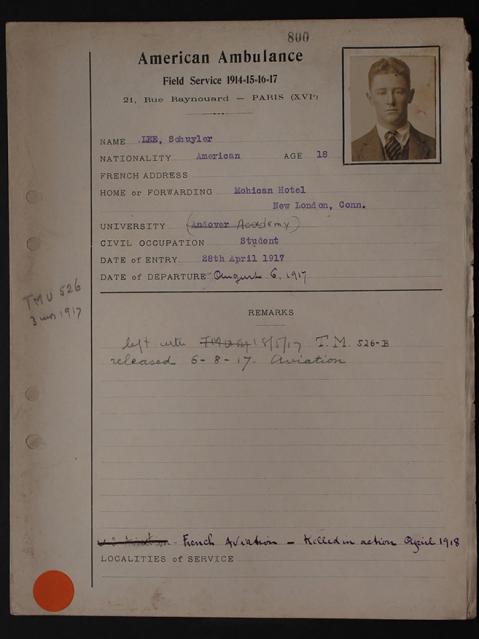 800
American Ambulance
Field Service 1914-15-16-17
21, Rue Raynouard — PARIS (XVIe)
NAME LEE, Schuyler
NATIONALITY American AGE 18
FRENCH ADDRESS
HOME or FORWARDING Mohican Hotel
New London, Conn.
UNIVERSITY (Andover Academy)
CIVIL OCCUPATION Student
DATE of ENTRY. 28th April 1917
DATE of DEPARTURE August 6, 1917
TMU 526
3 mos 1917
REMARKS
left with TMU 18/5/17 T.M. 526-B
released 6-8-17. Aviation
French Aviation — Killed in action April 1918
LOCALITIES of SERVICE